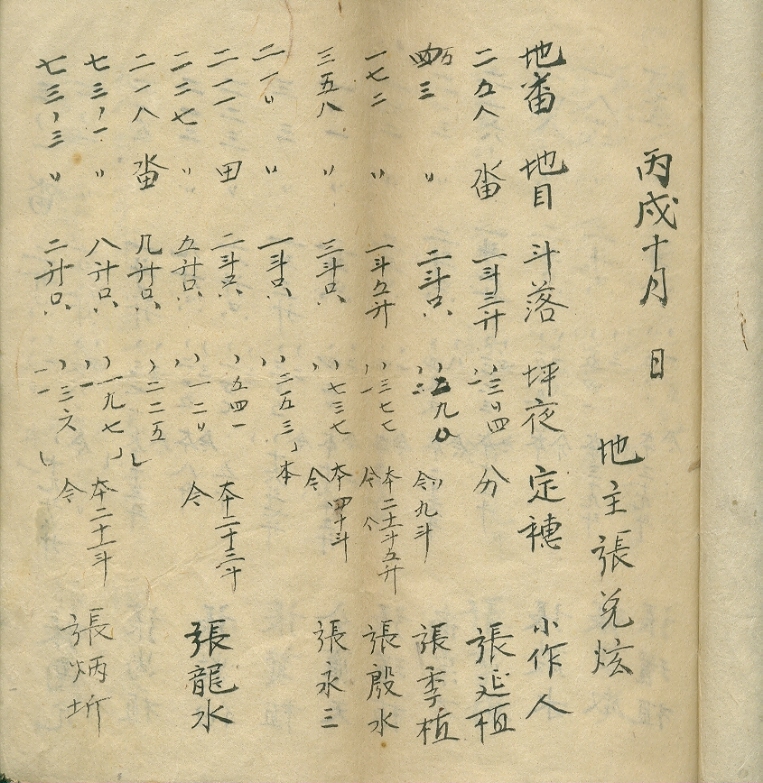 丙戌十月 日
地主 張兌炫
地番 地目 斗落 坪夜 定穗 小作人
二九八 畓 一斗三升 三〃四 分 張延植
三 〃 二斗只 九斗 張季植
一七二 〃 一斗五升 三七七 本二十五升 令 張殷水
三五八 〃 三斗只 七三七 本四十斗 令 張永三
二一〃 〃 一斗只 二五三 本
二一一 田 二斗只 五四一 本二十三斗
二二七 〃 五升只 一二〃 令 張龍水
二一八 畓 几升只 二二五
七三ノ一 〃 八升只 一九七 本二十二斗
七三ノ三 〃 二升只 三六 令 張炳圻